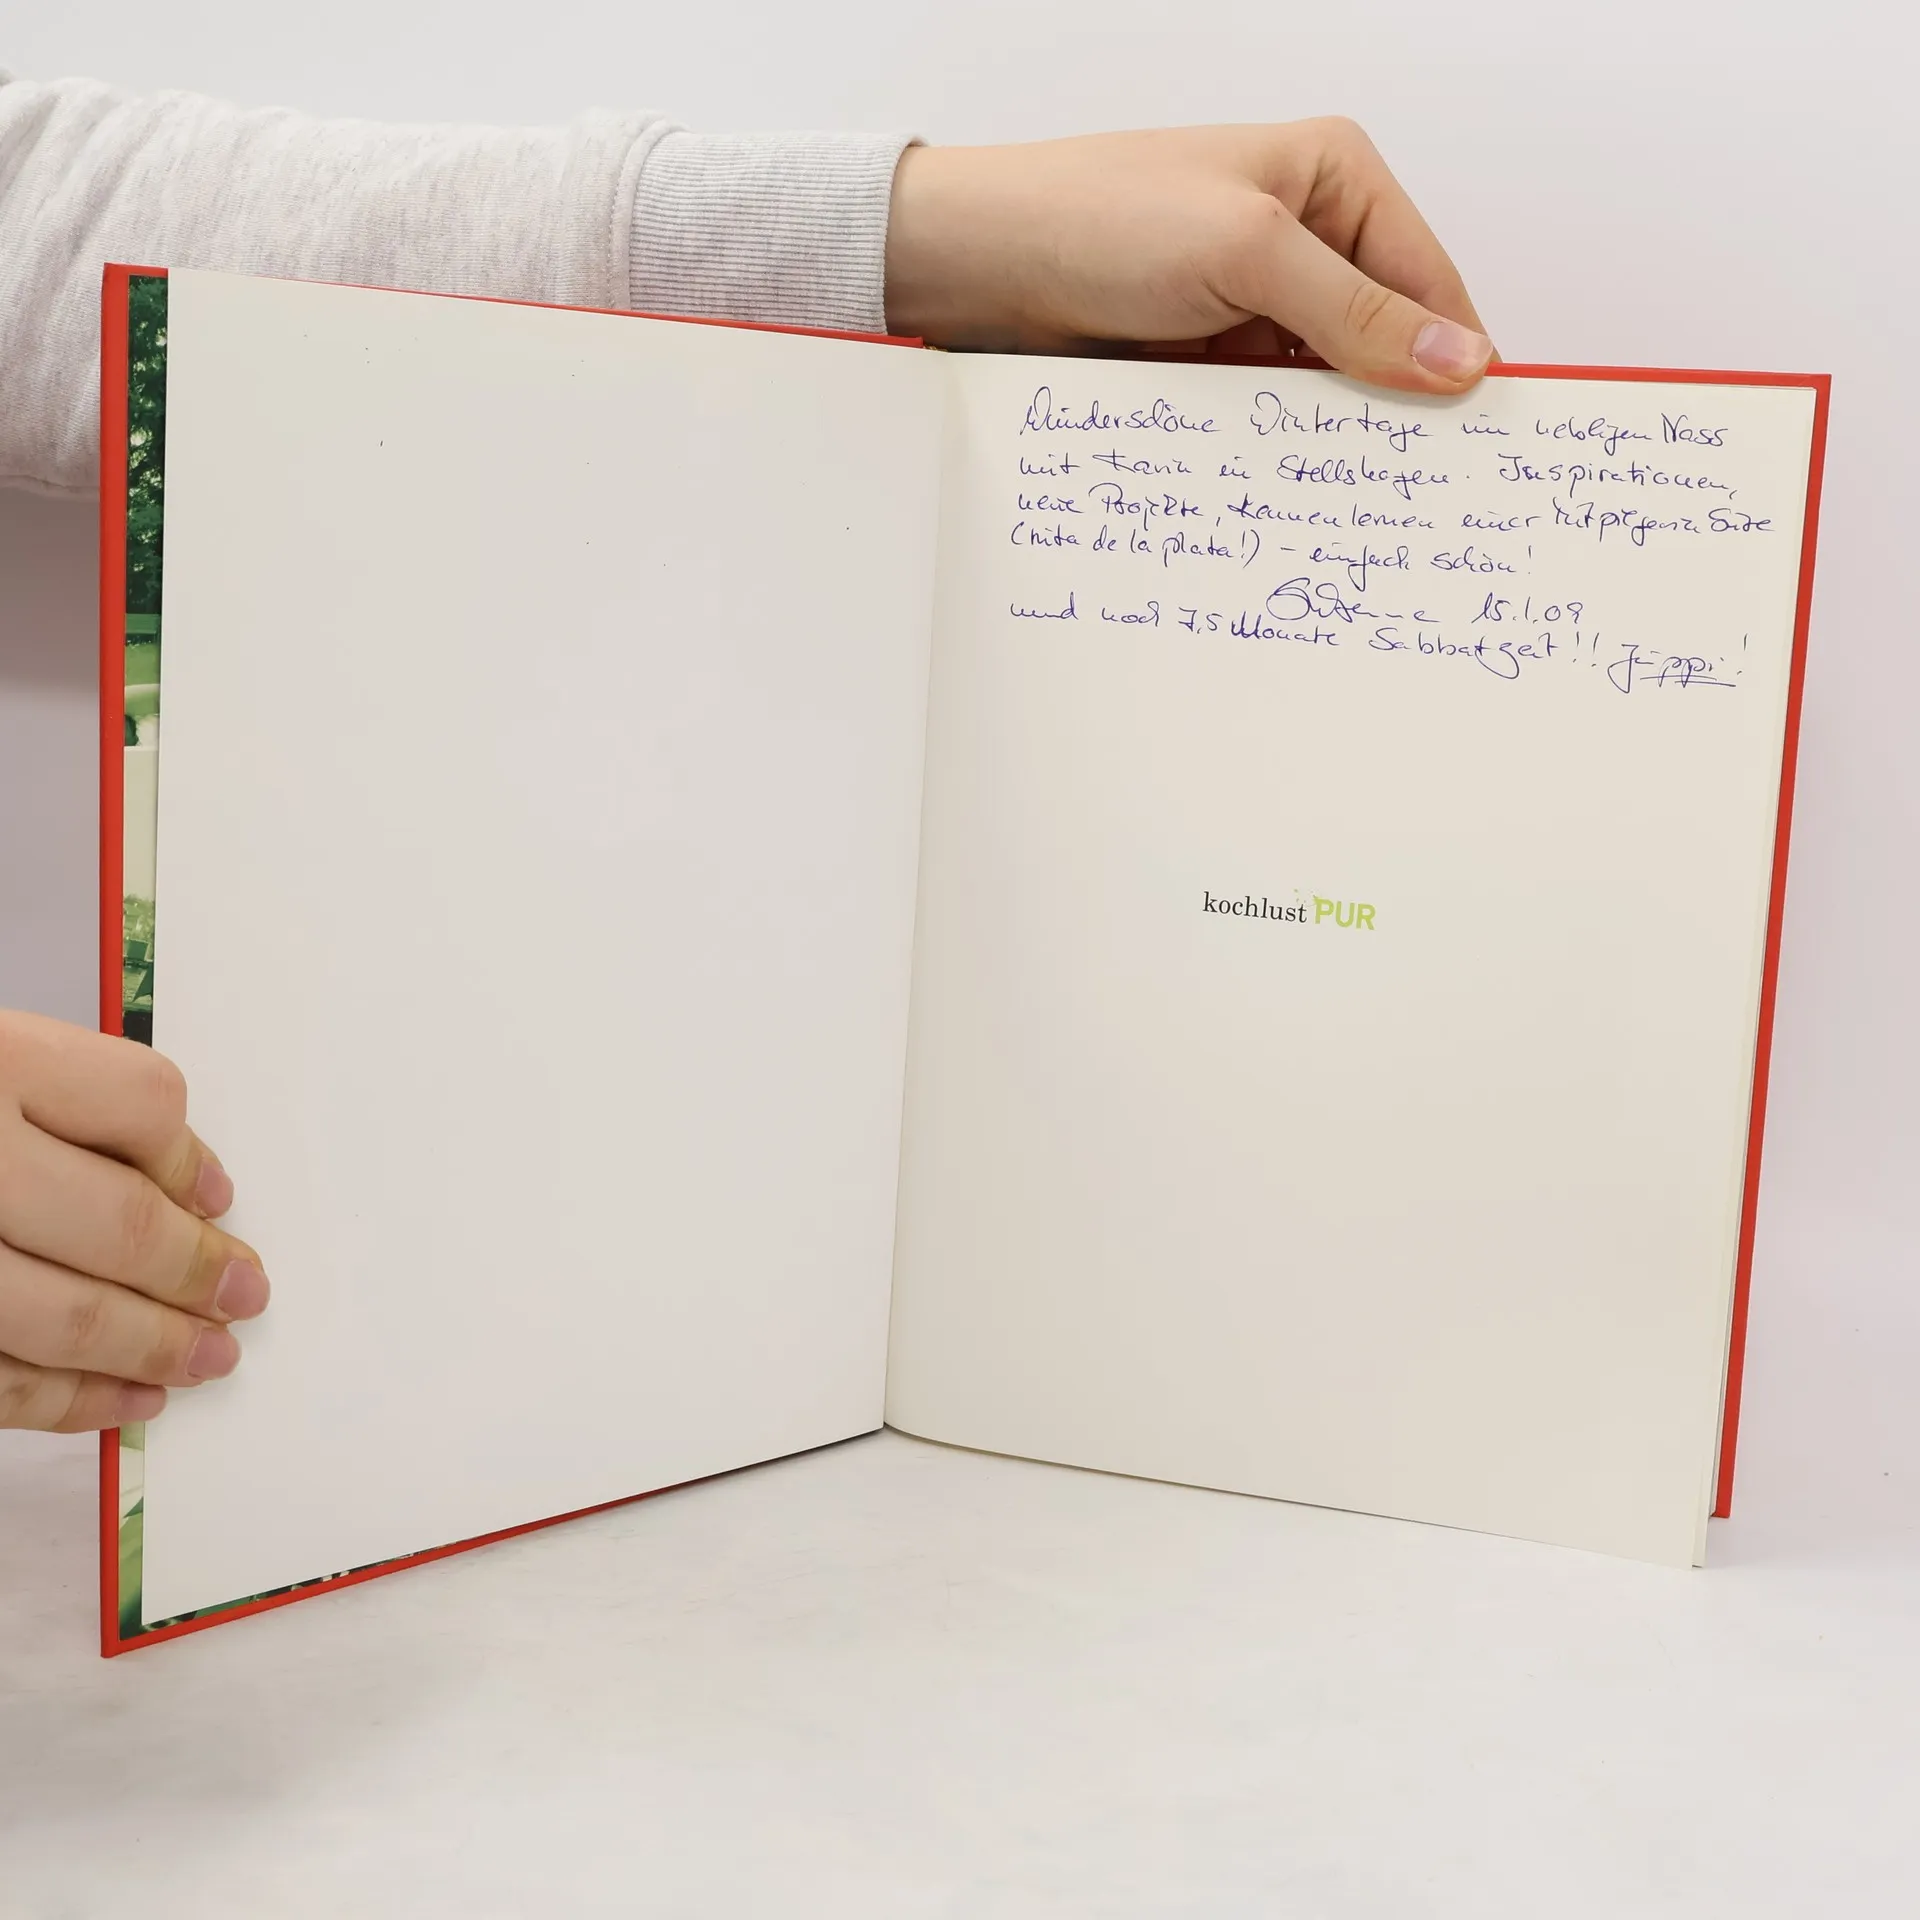 Wunderschöne Wintertage im nebligen Nass
mit Karin in Stellshagen. Inspirationen,
neue Projekte, Kennenlernen einer
(nita de la plata!) – einfach schön!
Susanne 15.1.09
und noch 7,5 Monate Sabbatzeit!! Jippi!
kochlust PUR